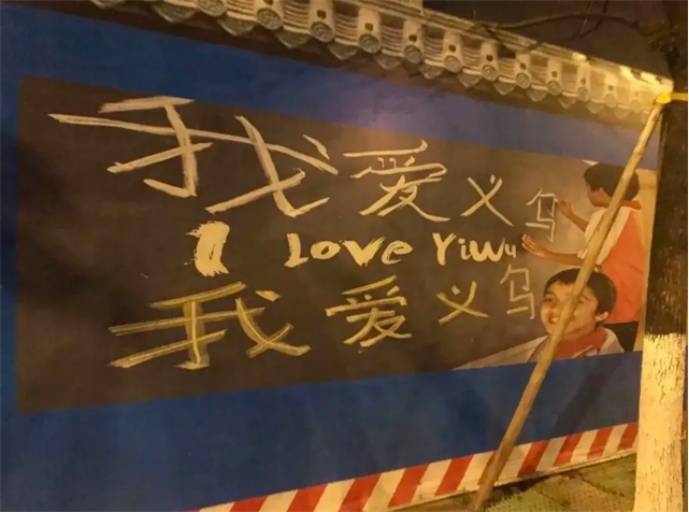 我爱义乌
I Love Yiwu
我爱义乌